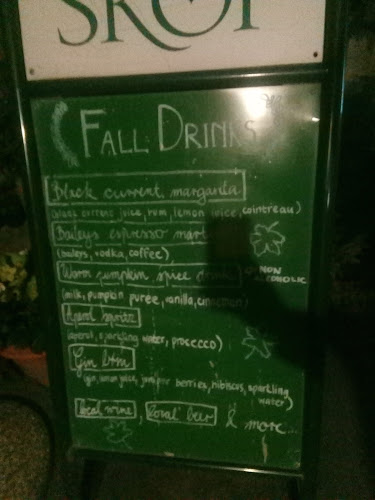 FALL DRINKS
Black current margarita
(black current juice, rum, lemon juice, cointreau)
Baileys espresso mart
(baileys, vodka, coffee)
Warm pumpkin spice drink
NON
ALCOHOLIC
(milk, pumpkin puree, vanilla, cinnamon)
Aperol spritz
(aperol, sparkling water, prosecco)
Gin
(gin, lemon juice, juniper berries, hibiscus, sparkling
water)
local wine, local beer & more...